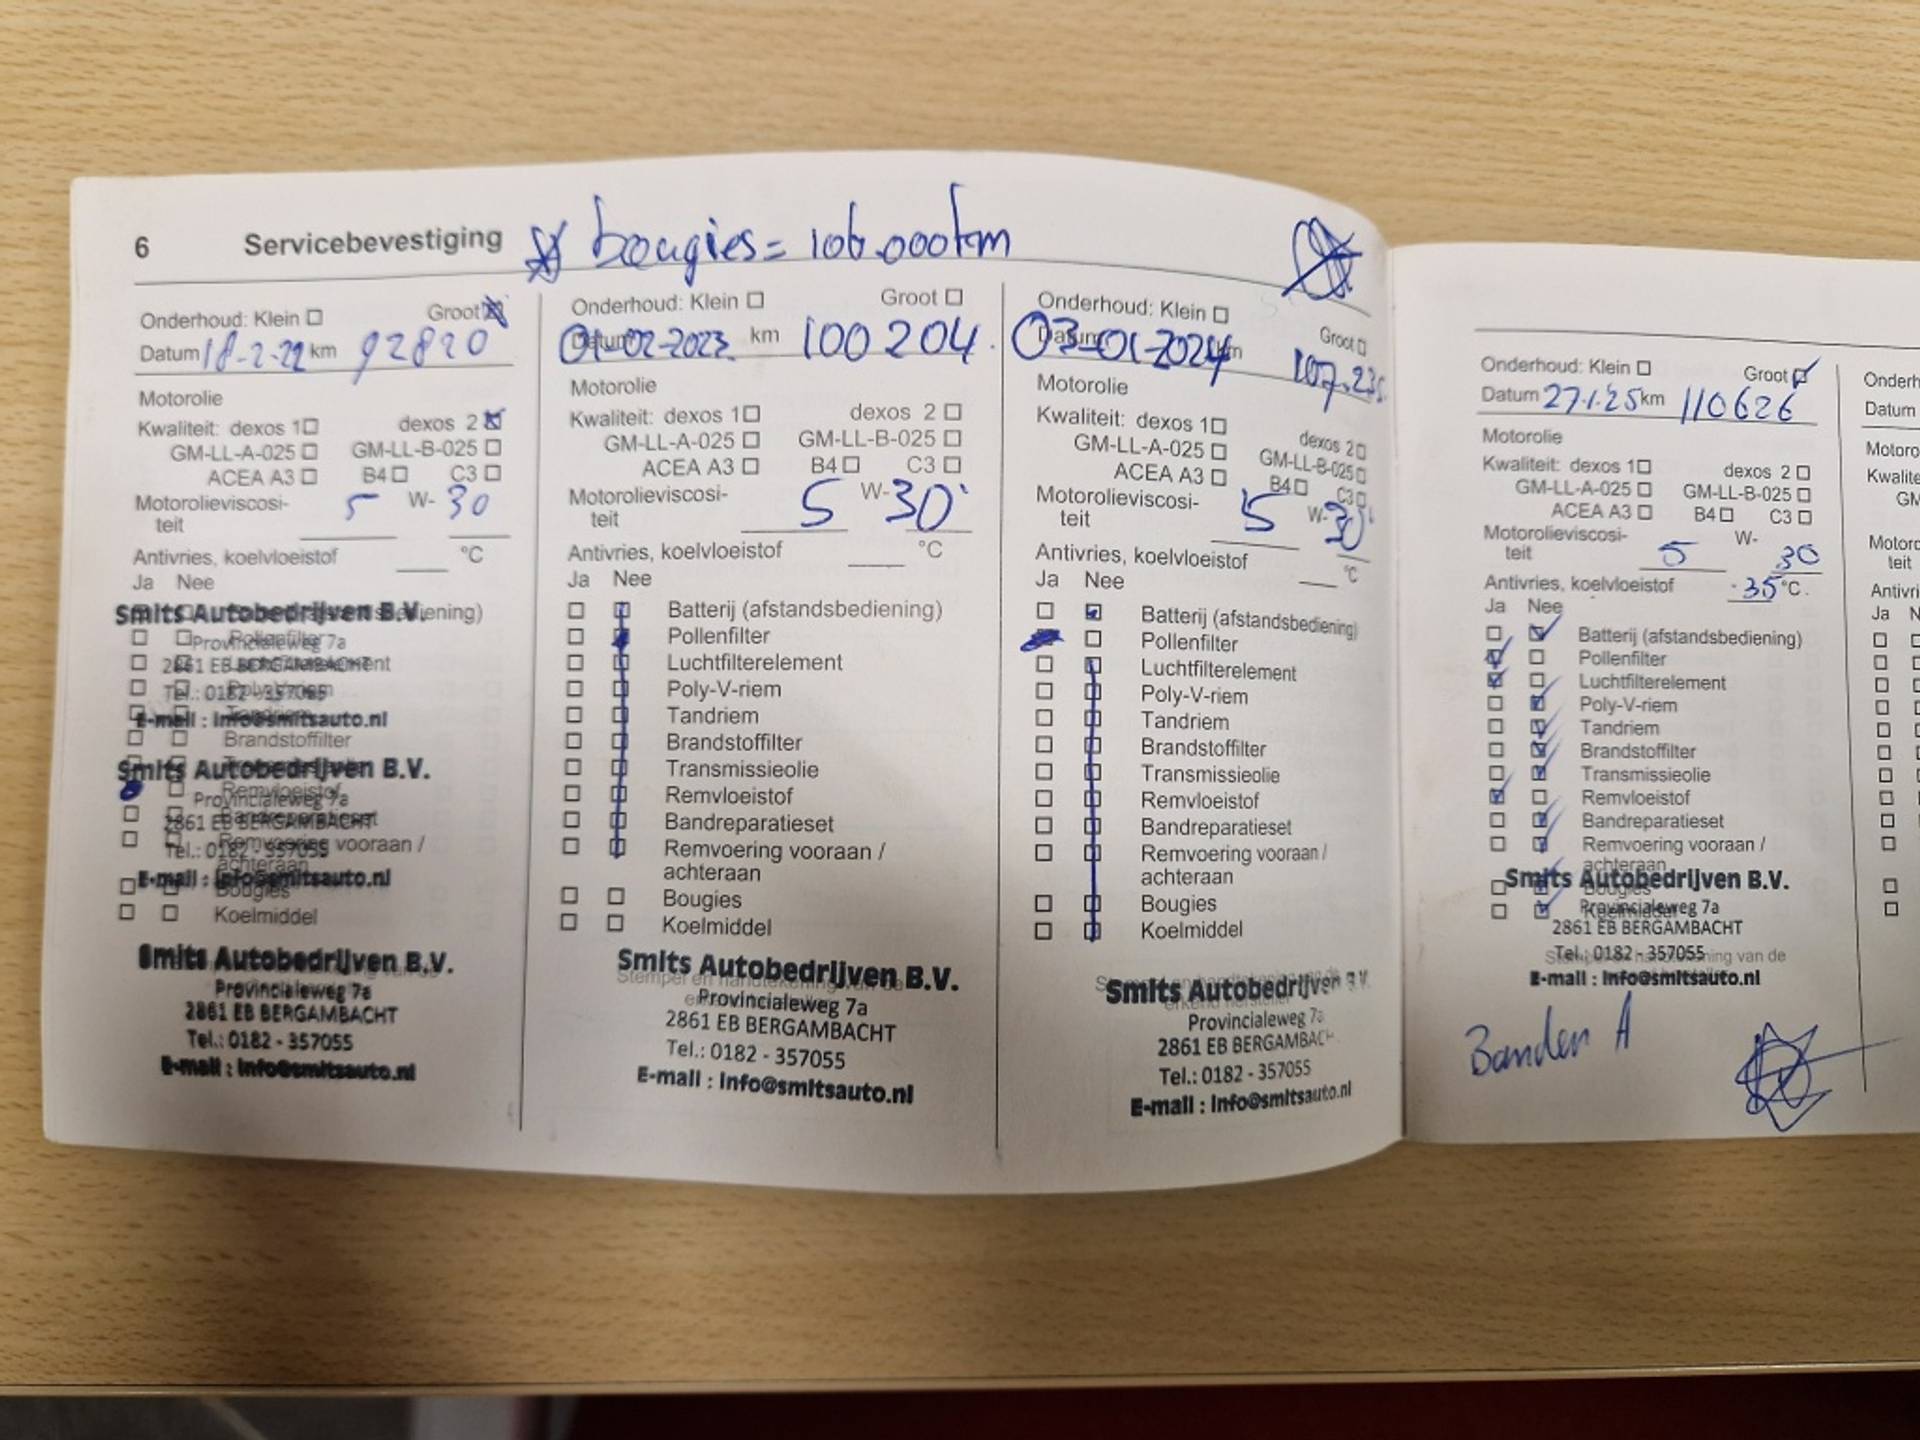 6 Servicebevestiging bougies = 106.000km
Onderhoud: Klein Groot
Datum 18-2-22 km 92820
Motorolie
Kwaliteit: dexos 1 dexos 2
GM-LL-A-025 GM-LL-B-025
ACEA A3 B4 C3
Motorolieviscosi-
teit 5 W- 30
Antivries, koelvloeistof °C
Ja Nee
Smits Autobedrijven B.V.
Provincialeweg 7a
2861 EB BERGAMBACHT
Tel.: 0182 - 357055
E-mail : info@smitsauto.nl
Brandstoffilter
Smits Autobedrijven B.V.
Remvloeistof
Provincialeweg 7a
2861 EB BERGAMBACHT
Remvoering vooraan /
Tel.: 0182 - 357055
achteraan
E-mail : info@smitsauto.nl
Bougies
Koelmiddel
Smits Autobedrijven B.V.
Provincialeweg 7a
2861 EB BERGAMBACHT
Tel.: 0182 - 357055
E-mail : info@smitsauto.nl
Onderhoud: Klein Groot
Datum 01-02-2023 km 100204.
Motorolie
Kwaliteit: dexos 1 dexos 2
GM-LL-A-025 GM-LL-B-025
ACEA A3 B4 C3
Motorolieviscosi-
teit 5 W- 30
Antivries, koelvloeistof °C
Ja Nee
Batterij (afstandsbediening)
Pollenfilter
Luchtfilterelement
Poly-V-riem
Tandriem
Brandstoffilter
Transmissieolie
Remvloeistof
Bandreparatieset
Remvoering vooraan /
achteraan
Bougies
Koelmiddel
Smits Autobedrijven B.V.
Stempel en handtekening van de
Provincialeweg 7a
2861 EB BERGAMBACHT
Tel.: 0182 - 357055
E-mail : info@smitsauto.nl
Onderhoud: Klein Groot
Datum 03-01-2024 km
Motorolie
Kwaliteit: dexos 1 dexos 2
GM-LL-A-025 GM-LL-B-025
ACEA A3 B4 C3
Motorolieviscosi-
teit 5 W- 30
Antivries, koelvloeistof °C
Ja Nee
Batterij (afstandsbediening)
Pollenfilter
Luchtfilterelement
Poly-V-riem
Tandriem
Brandstoffilter
Transmissieolie
Remvloeistof
Bandreparatieset
Remvoering vooraan /
achteraan
Bougies
Koelmiddel
Stempel en handtekening van de
Smits Autobedrijven B.V.
erkend hersteller
Provincialeweg 7a
2861 EB BERGAMBACH
Tel.: 0182 - 357055
E-mail : info@smitsauto.nl
Onderhoud: Klein Groot
Datum 27.1.25 km 110626
Motorolie
Kwaliteit: dexos 1 dexos 2
GM-LL-A-025 GM-LL-B-025
ACEA A3 B4 C3
Motorolieviscosi-
teit 5 W- 30
Antivries, koelvloeistof -35 °C.
Ja Nee
Batterij (afstandsbediening)
Pollenfilter
Luchtfilterelement
Poly-V-riem
Tandriem
Brandstoffilter
Transmissieolie
Remvloeistof
Bandreparatieset
Remvoering vooraan /
achteraan
Smits Autobedrijven B.V.
Bougies
Provincialeweg 7a
Koelmiddel
2861 EB BERGAMBACHT
Tel.: 0182 - 357055
E-mail : info@smitsauto.nl
Banden A
Onderh
Datum
Motoro
Kwalite
GM
Motoro
teit
Antivri
Ja N